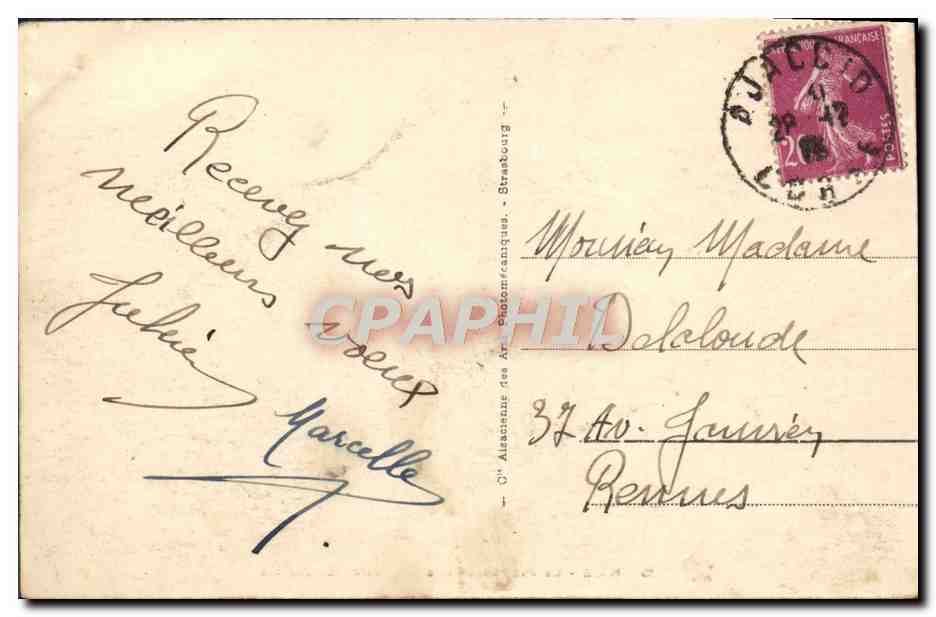 Recevez nos
meilleurs voeux
Julien
Marcelle
Cie Alsacienne des Arts Photomécaniques. - Strasbourg
AJACCIO
CORSE
RÉPUBLIQUE FRANÇAISE
POSTES
20c
CPAPHIL
Monsieur Madame
Delalonde
37 Av. Janvier
Rennes